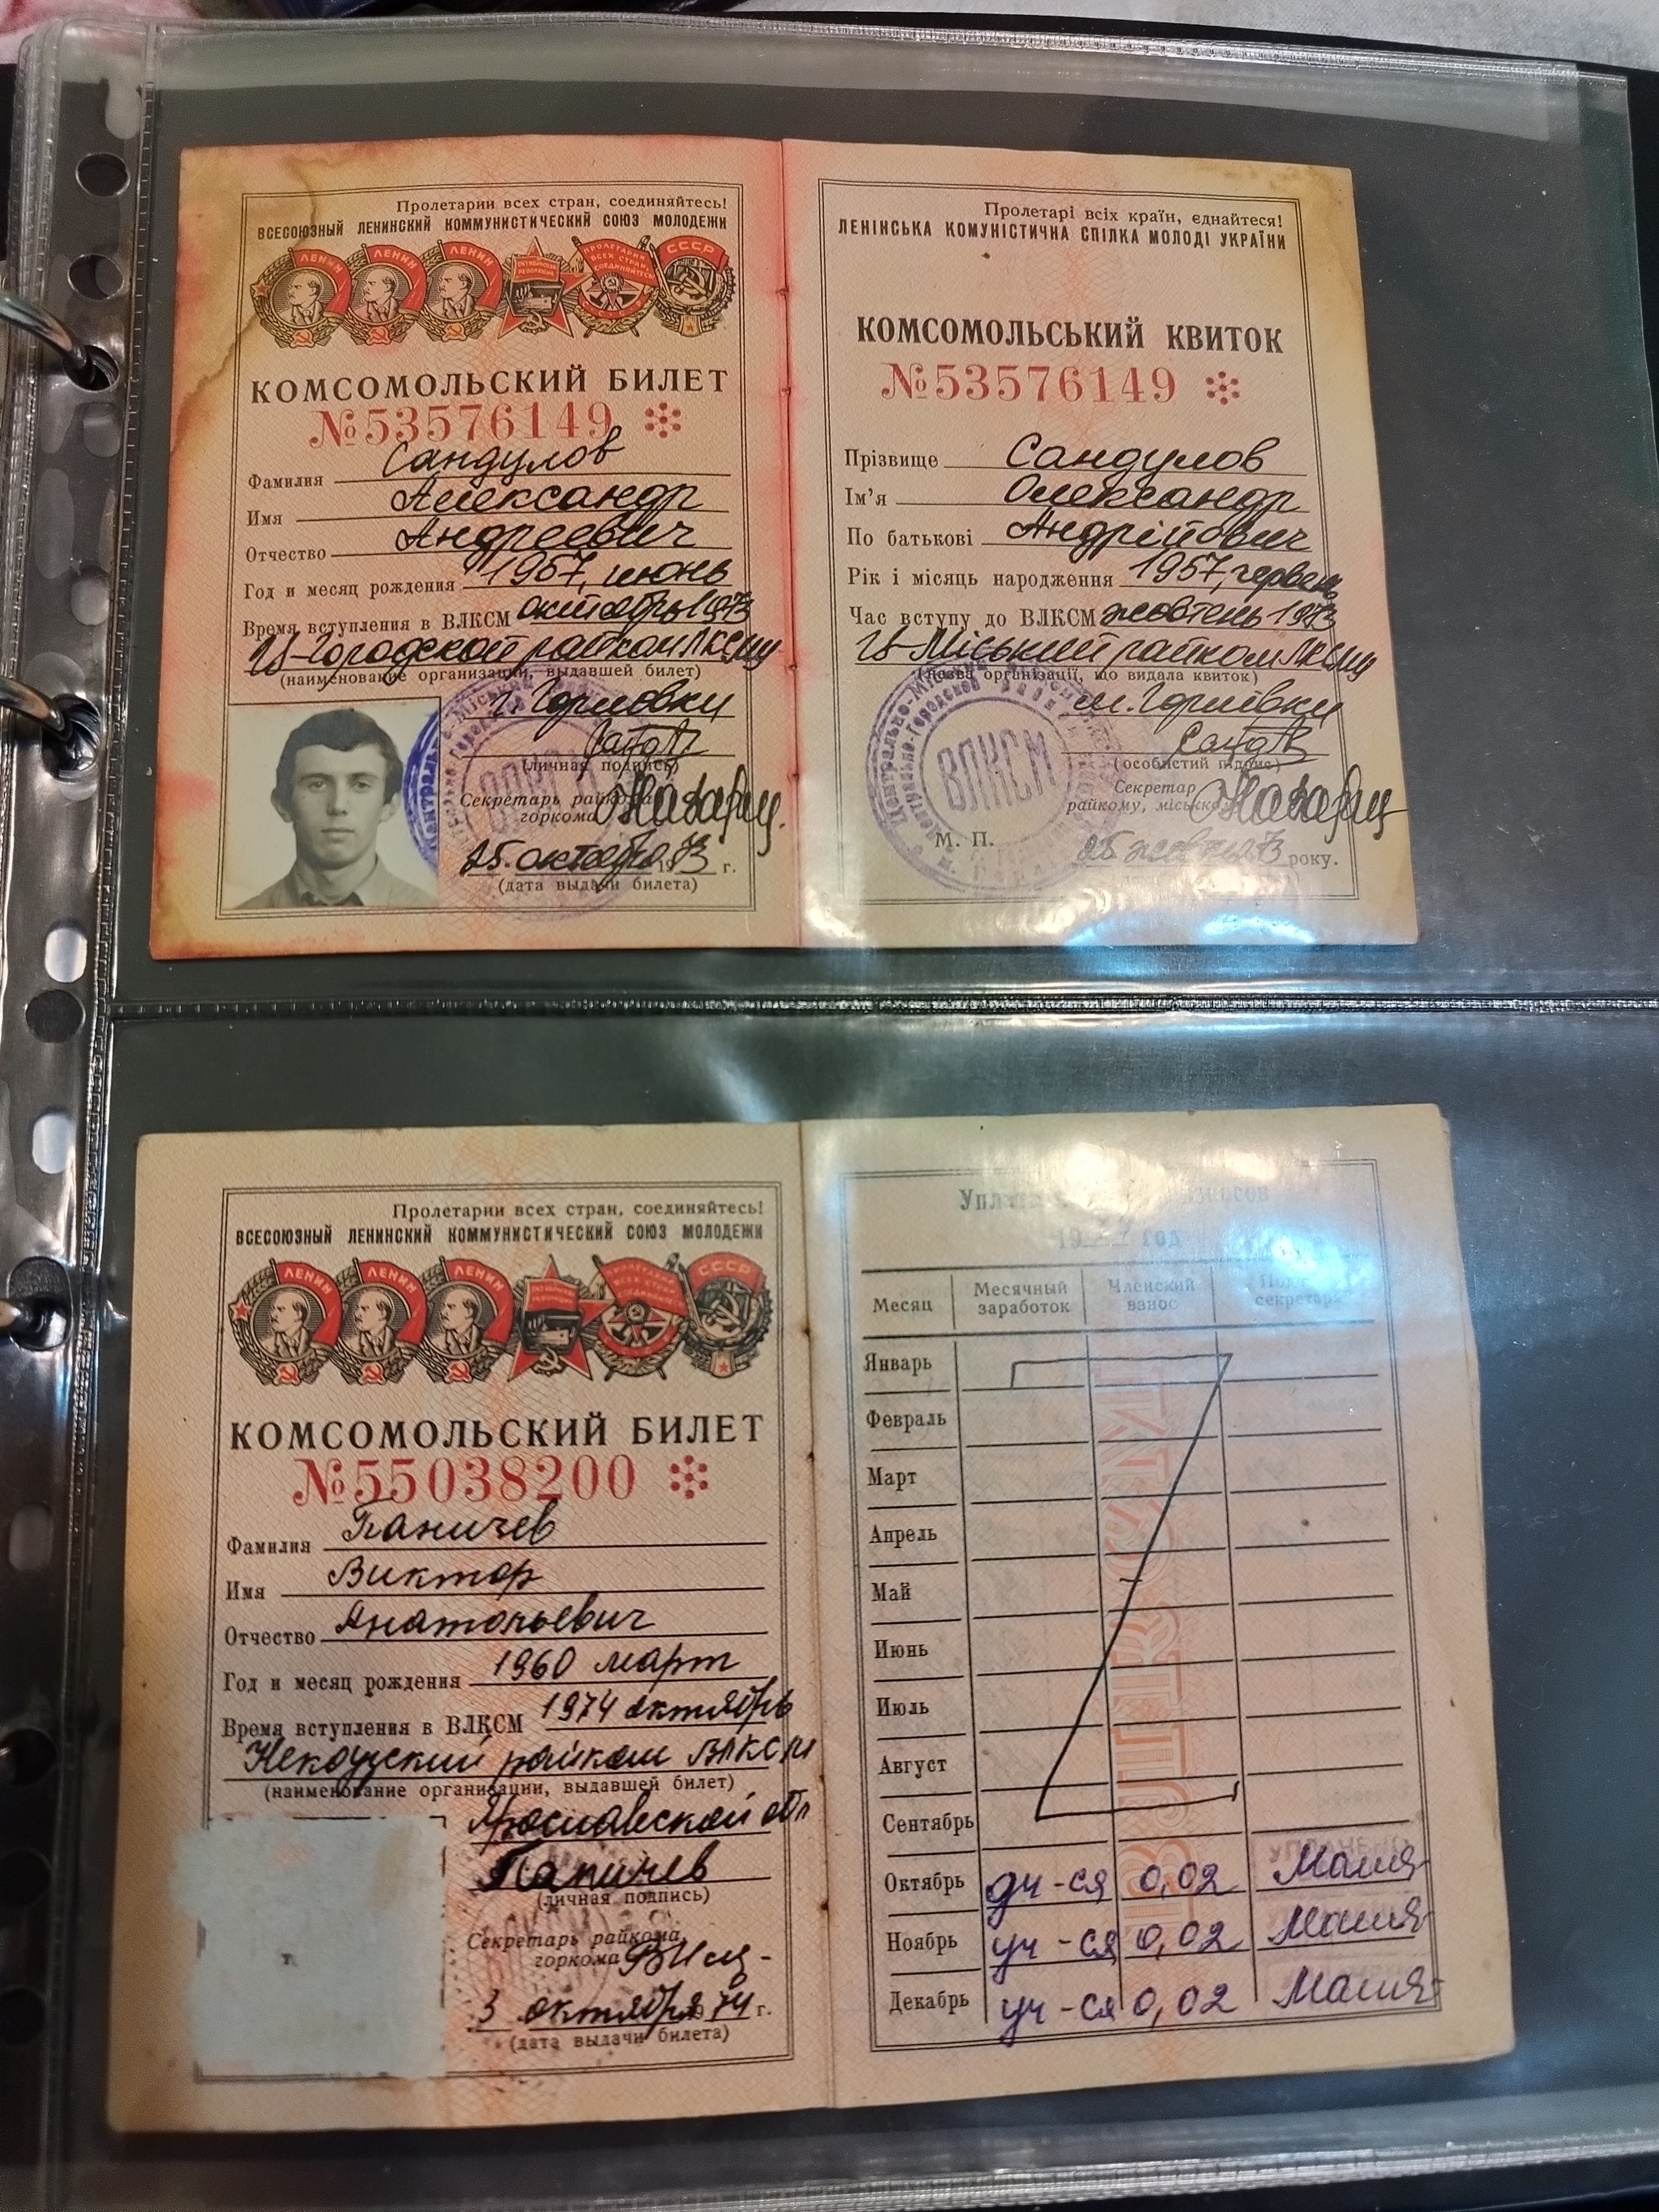 Пролетарии всех стран, соединяйтесь!
ВСЕСОЮЗНЫЙ ЛЕНИНСКИЙ КОММУНИСТИЧЕСКИЙ СОЮЗ МОЛОДЕЖИ
ЛЕНИН ЛЕНИН ЛЕНИН ОКТЯБРЬСКАЯ РЕВОЛЮЦИЯ ПРОЛЕТАРИИ ВСЕХ СТРАН, СОЕДИНЯЙТЕСЬ СССР
КОМСОМОЛЬСКИЙ БИЛЕТ
№53576149
Фамилия Сандулов
Имя Александр
Отчество Андреевич
Год и месяц рождения 1957, июнь
Время вступления в ВЛКСМ октябрь 1973
Ц-Городской райком ЛКСМУ
(наименование организации, выдавшей билет)
г. Горловки
(личная подпись)
Секретарь райкома
горкома
25 октября 1973 г.
(дата выдачи билета)
Пролетарі всіх країн, єднайтеся!
ЛЕНІНСЬКА КОМУНІСТИЧНА СПІЛКА МОЛОДІ УКРАЇНИ
КОМСОМОЛЬСЬКИЙ КВИТОК
№53576149
Прізвище Сандулов
Ім'я Олександр
По батькові Андрійович
Рік і місяць народження 1957, червень
Час вступу до ВЛКСМ жовтень 1973
Ц-Міський райком ЛКСМУ
(назва організації, що видала квиток)
м. Горлівки
(особистий підпис)
Секретар
райкому, міськкому
ВЛКСМ
М. П.
25 жовтня 73 року.
Пролетарии всех стран, соединяйтесь!
ВСЕСОЮЗНЫЙ ЛЕНИНСКИЙ КОММУНИСТИЧЕСКИЙ СОЮЗ МОЛОДЕЖИ
ЛЕНИН ЛЕНИН ЛЕНИН ОКТЯБРЬСКАЯ РЕВОЛЮЦИЯ ПРОЛЕТАРИИ ВСЕХ СТРАН, СОЕДИНЯЙТЕСЬ СССР
КОМСОМОЛЬСКИЙ БИЛЕТ
№55038200
Фамилия Паничев
Имя Виктор
Отчество Анатольевич
Год и месяц рождения 1960 март
Время вступления в ВЛКСМ 1974 октябрь
Некоузский райком ВЛКСМ
(наименование организации, выдавшей билет)
Ярославской обл
Паничев
(личная подпись)
Секретарь райкома,
горкома
3 октября 1974 г.
(дата выдачи билета)
Уплата взносов
19 год
Месяц Месячный заработок Членский взнос секретаря
Январь
Февраль
Март
Апрель
Май
Июнь
Июль
Август
Сентябрь
Октябрь уч-ся 0,02
Ноябрь уч-ся 0,02
Декабрь уч-ся 0,02
ВЛКСМ
УПЛАЧЕНО